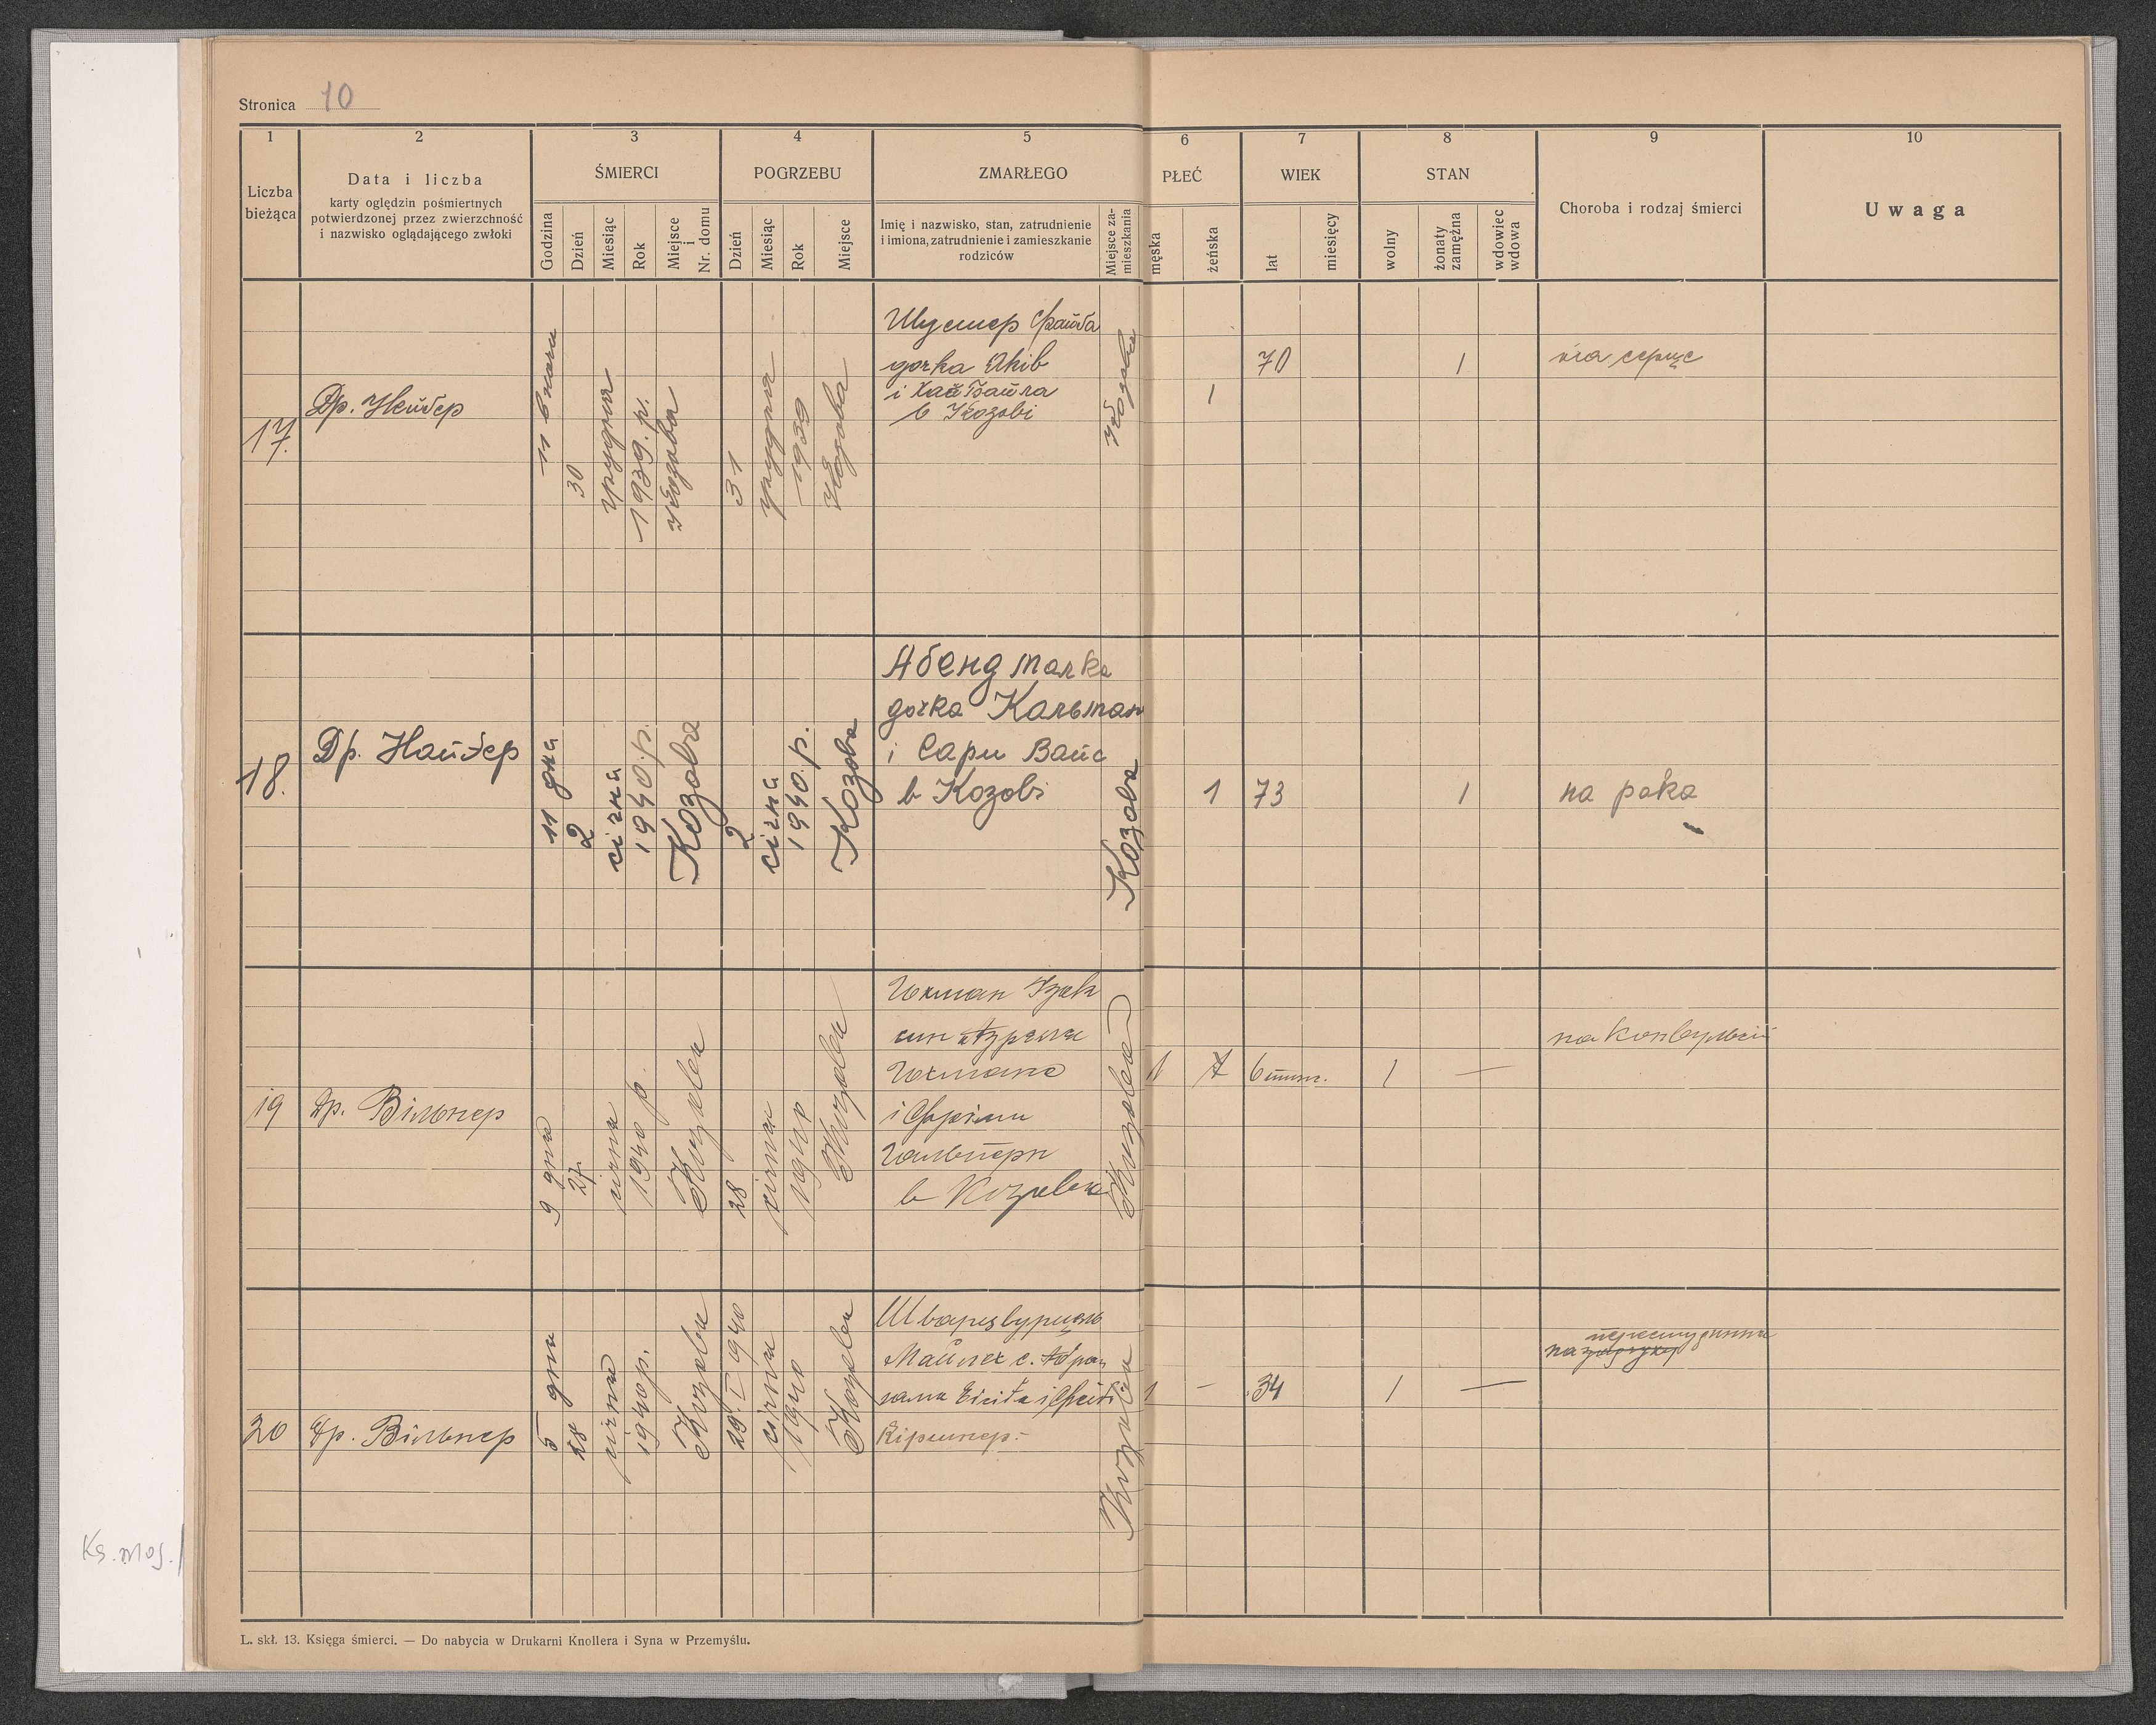 Stronica 10
1 2 3 4 5 6 7 8 9 10
Liczba bieżąca
Data i liczba
karty oględzin pośmiertnych
potwierdzonej przez zwierzchność
i nazwisko oglądającego zwłoki
ŚMIERCI
Godzina
Dzień
Miesiąc
Rok
Miejsce i Nr. domu
POGRZEBU
Dzień
Miesiąc
Rok
Miejsce
ZMARŁEGO
Imię i nazwisko, stan, zatrudnienie
i imiona, zatrudnienie i zamieszkanie
rodziców
Miejsce za-
mieszkania
PŁEĆ
męska
żeńska
WIEK
lat
miesięcy
STAN
wolny
żonaty
zamężna
wdowiec
wdowa
Choroba i rodzaj śmierci
Uwaga
17.
Др. Нейдер
11
30
грудня
1939. р.
Козова
31
грудня
1939
Козова
Шустер Файда
дочка Якiв
i
в Козовi
Козова
1
70
1
на серце
18.
Др. Найдер
11 дна
2
сiчна
1940. р.
Козова
2
сiчна
1940. р.
Козова
Абенд Малка
дочка Кальман
i Сари Вайс
в Козовi
Козова
1
73
1
на рака
19
Др. Вiльнер
9 дня
27.
сiчня
1940 р.
Козова
28
сiчня
1940
Козова
Iзак
син
i
в Козова
Козова
1
6
1
—
на
20
Др. Вiльнер
5 дня
28
сiчня
1940р.
Козова
29. I 1940
сiчня
1940
Козова
Майлех с. Абра
Кiршнер.-
Козова
1
—
34
1
—
на
L. skł. 13. Księga śmierci. — Do nabycia w Drukarni Knollera i Syna w Przemyślu.
Ks. moj.